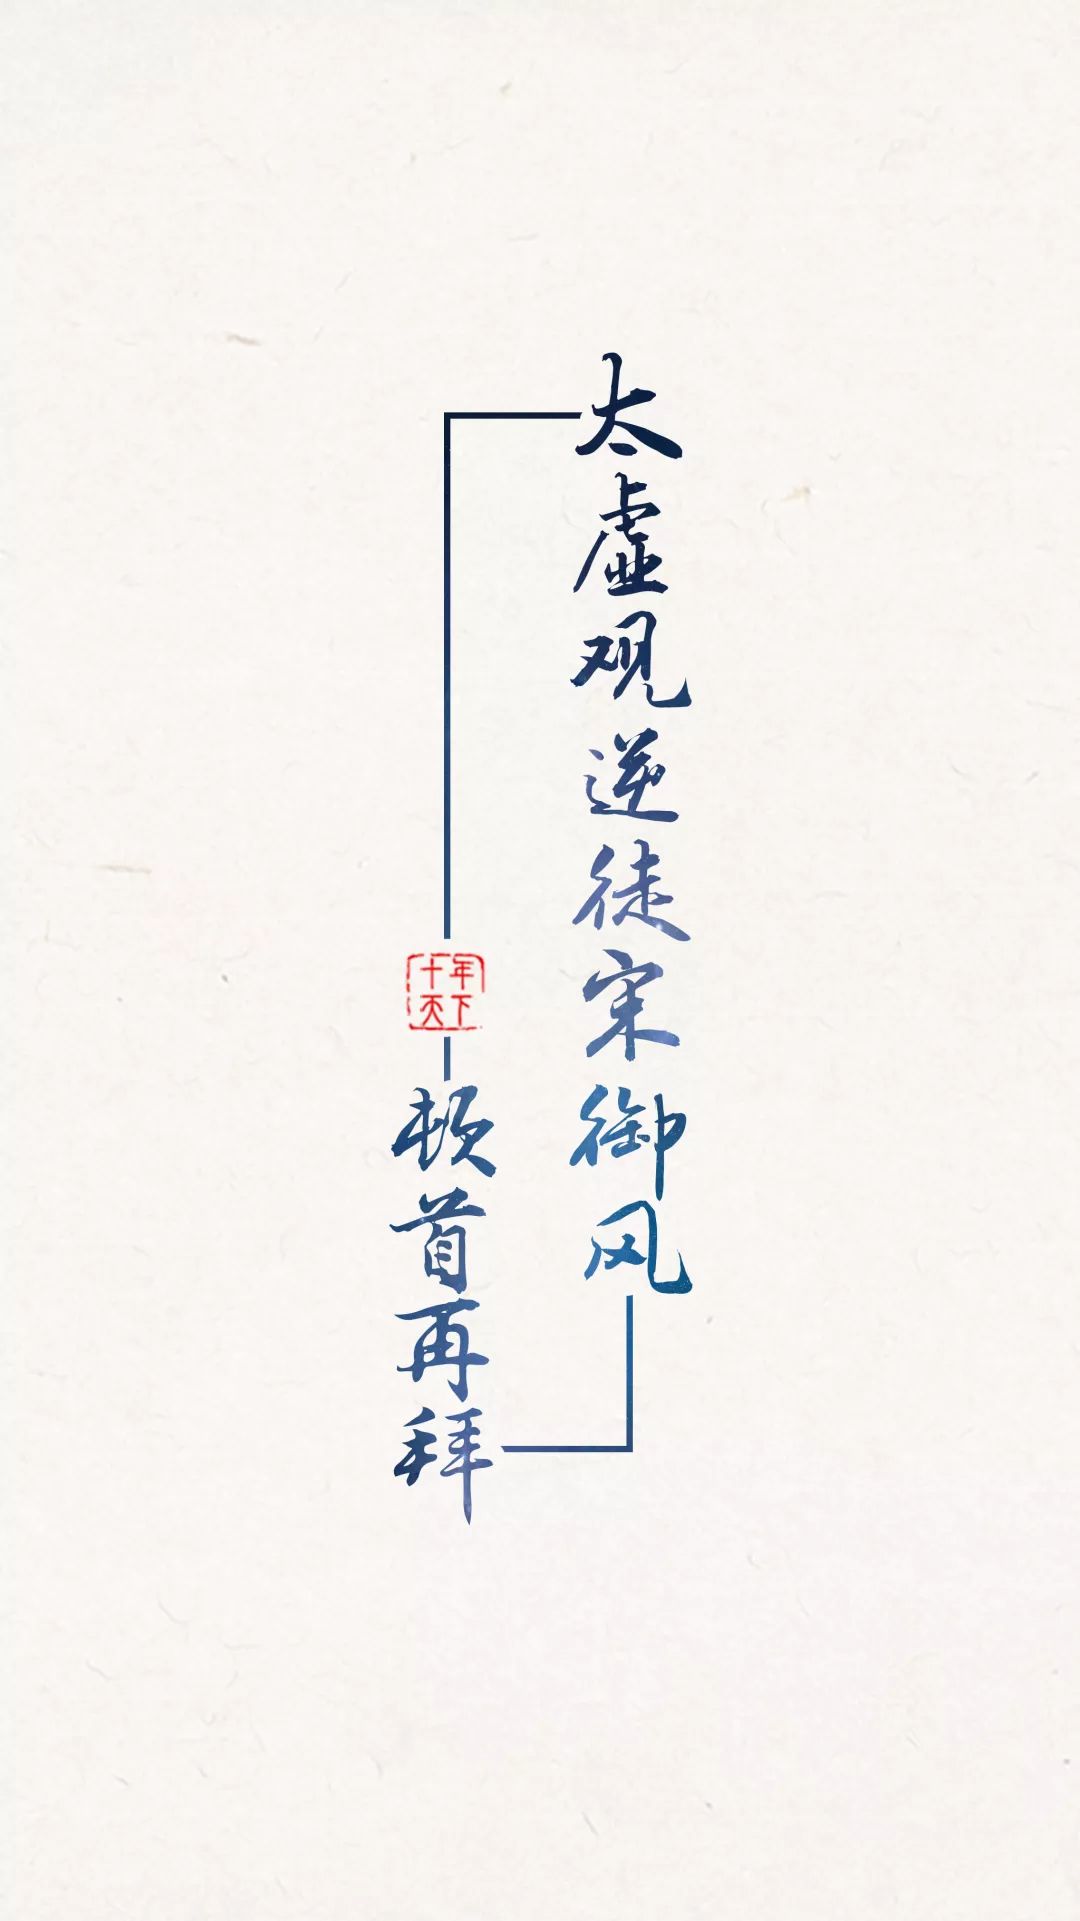 太虚观逆徒宋御风
顿首再拜
十年
天下